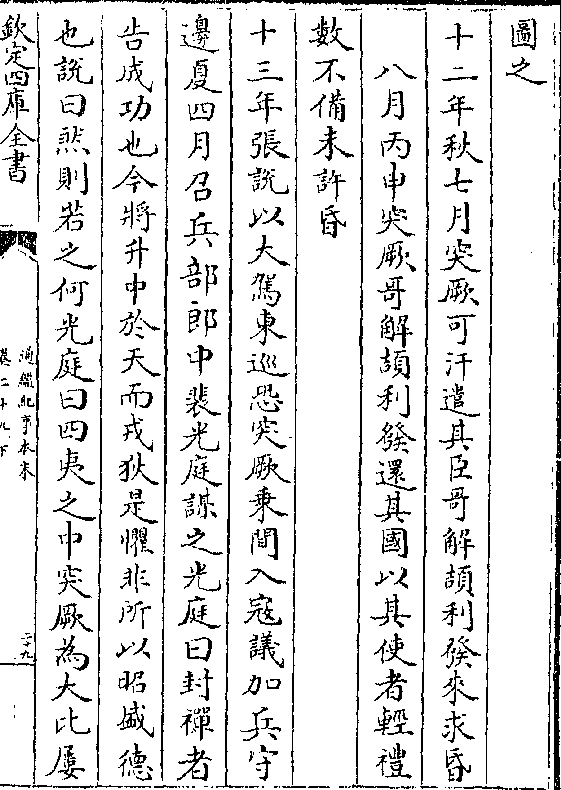 圖之
十二年秋七月突厥可汗遣其臣哥解頡利發來求昏
八月丙申突厥哥解頡利發還其國以其使者輕禮
數不備未許昏
十三年張說以大駕東巡恐突厥乗間入寇議加兵守
邊夏四月召兵部郎中裴光庭謀之光庭曰封禪者
告成功也今將升中於天而戎狄是懼非所以昭盛德
也說曰然則若之何光庭曰四夷之中突厥為大比屢
欽定四庫全書
通鑑紀事本末
卷二十九下
二十九